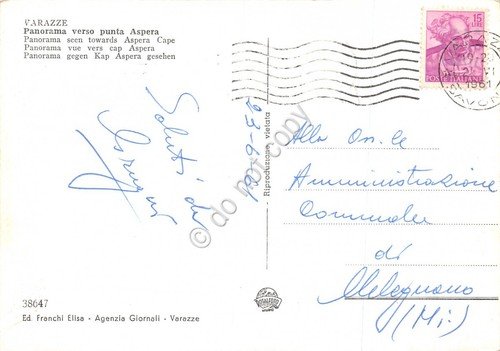 VARAZZE
Panorama verso punta Aspera
Panorama seen towards Aspera Cape
Panorama vue vers cap Aspera
Panorama gegen Kap Aspera gesehen
15
LIRE
POSTE ITALIANE
19-2
1961
SAVONA
Saluti da
23-6-61
Riproduzione vietata
© do not copy
Alla On. le
Amministrazione
Comunale
di
Melegnano
(Mi.)
38647
Ed Franchi Elisa - Agenzia Giornali - Varazze